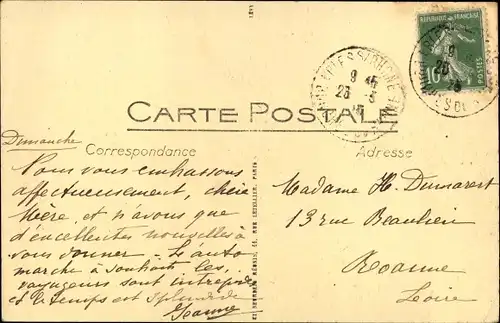 REPUBLIQUE FRANÇAISE
POSTES
10
9 45
23 3
CARTE POSTALE
Correspondance
Adresse
Dimanche
Nous vous embrassons
affectueusement, chère
Mère, et n'avons que
d'excellentes nouvelles à
vous donner - L'auto
marche à souhaits les
voyageurs sont intrépides
et le temps est splendide
Jeanne
Madame H. Dumarest
13 rue Beaulieu
Roanne
Loire